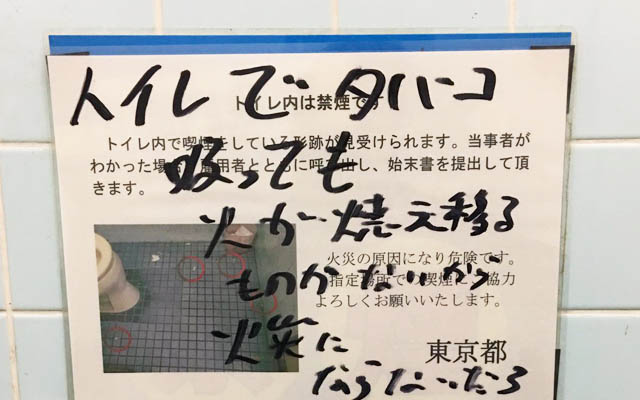 トイレでタバコ
吸っても
火が焼え移る
ものがないから
火災に
ならないだろ
トイレ内は禁煙です
トイレ内で喫煙をしている形跡が見受けられます。当事者が
わかった場合 用者とともに呼び出し、始末書を提出して頂
きます。
火災の原因になり危険です。
指定場所での喫煙にご協力
よろしくお願いいたします。
東京都